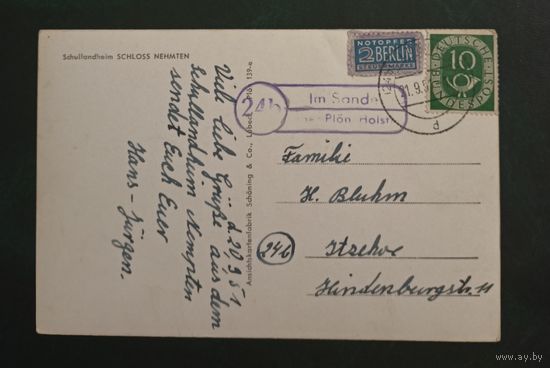 Schullandheim SCHLOSS NEHMTEN
d. 20.9.51
Viele liebe Grüße aus dem
Schullandheim Nempten
sendet Euch Euer
Hans-Jürgen.
Ansichtskartenfabrik Schöning & Co., Lübeck
139-e
NOTOPFER
2 BERLIN
STEUERMARKE
DEUTSCHE
BUNDESPOST
10
(24b
21.9.5
d
24b
Im Sande
Plön Holst
Familie
H. Bluhm
(24b)
Itzehoe
Hindenburgstr. 11
www.ay.by